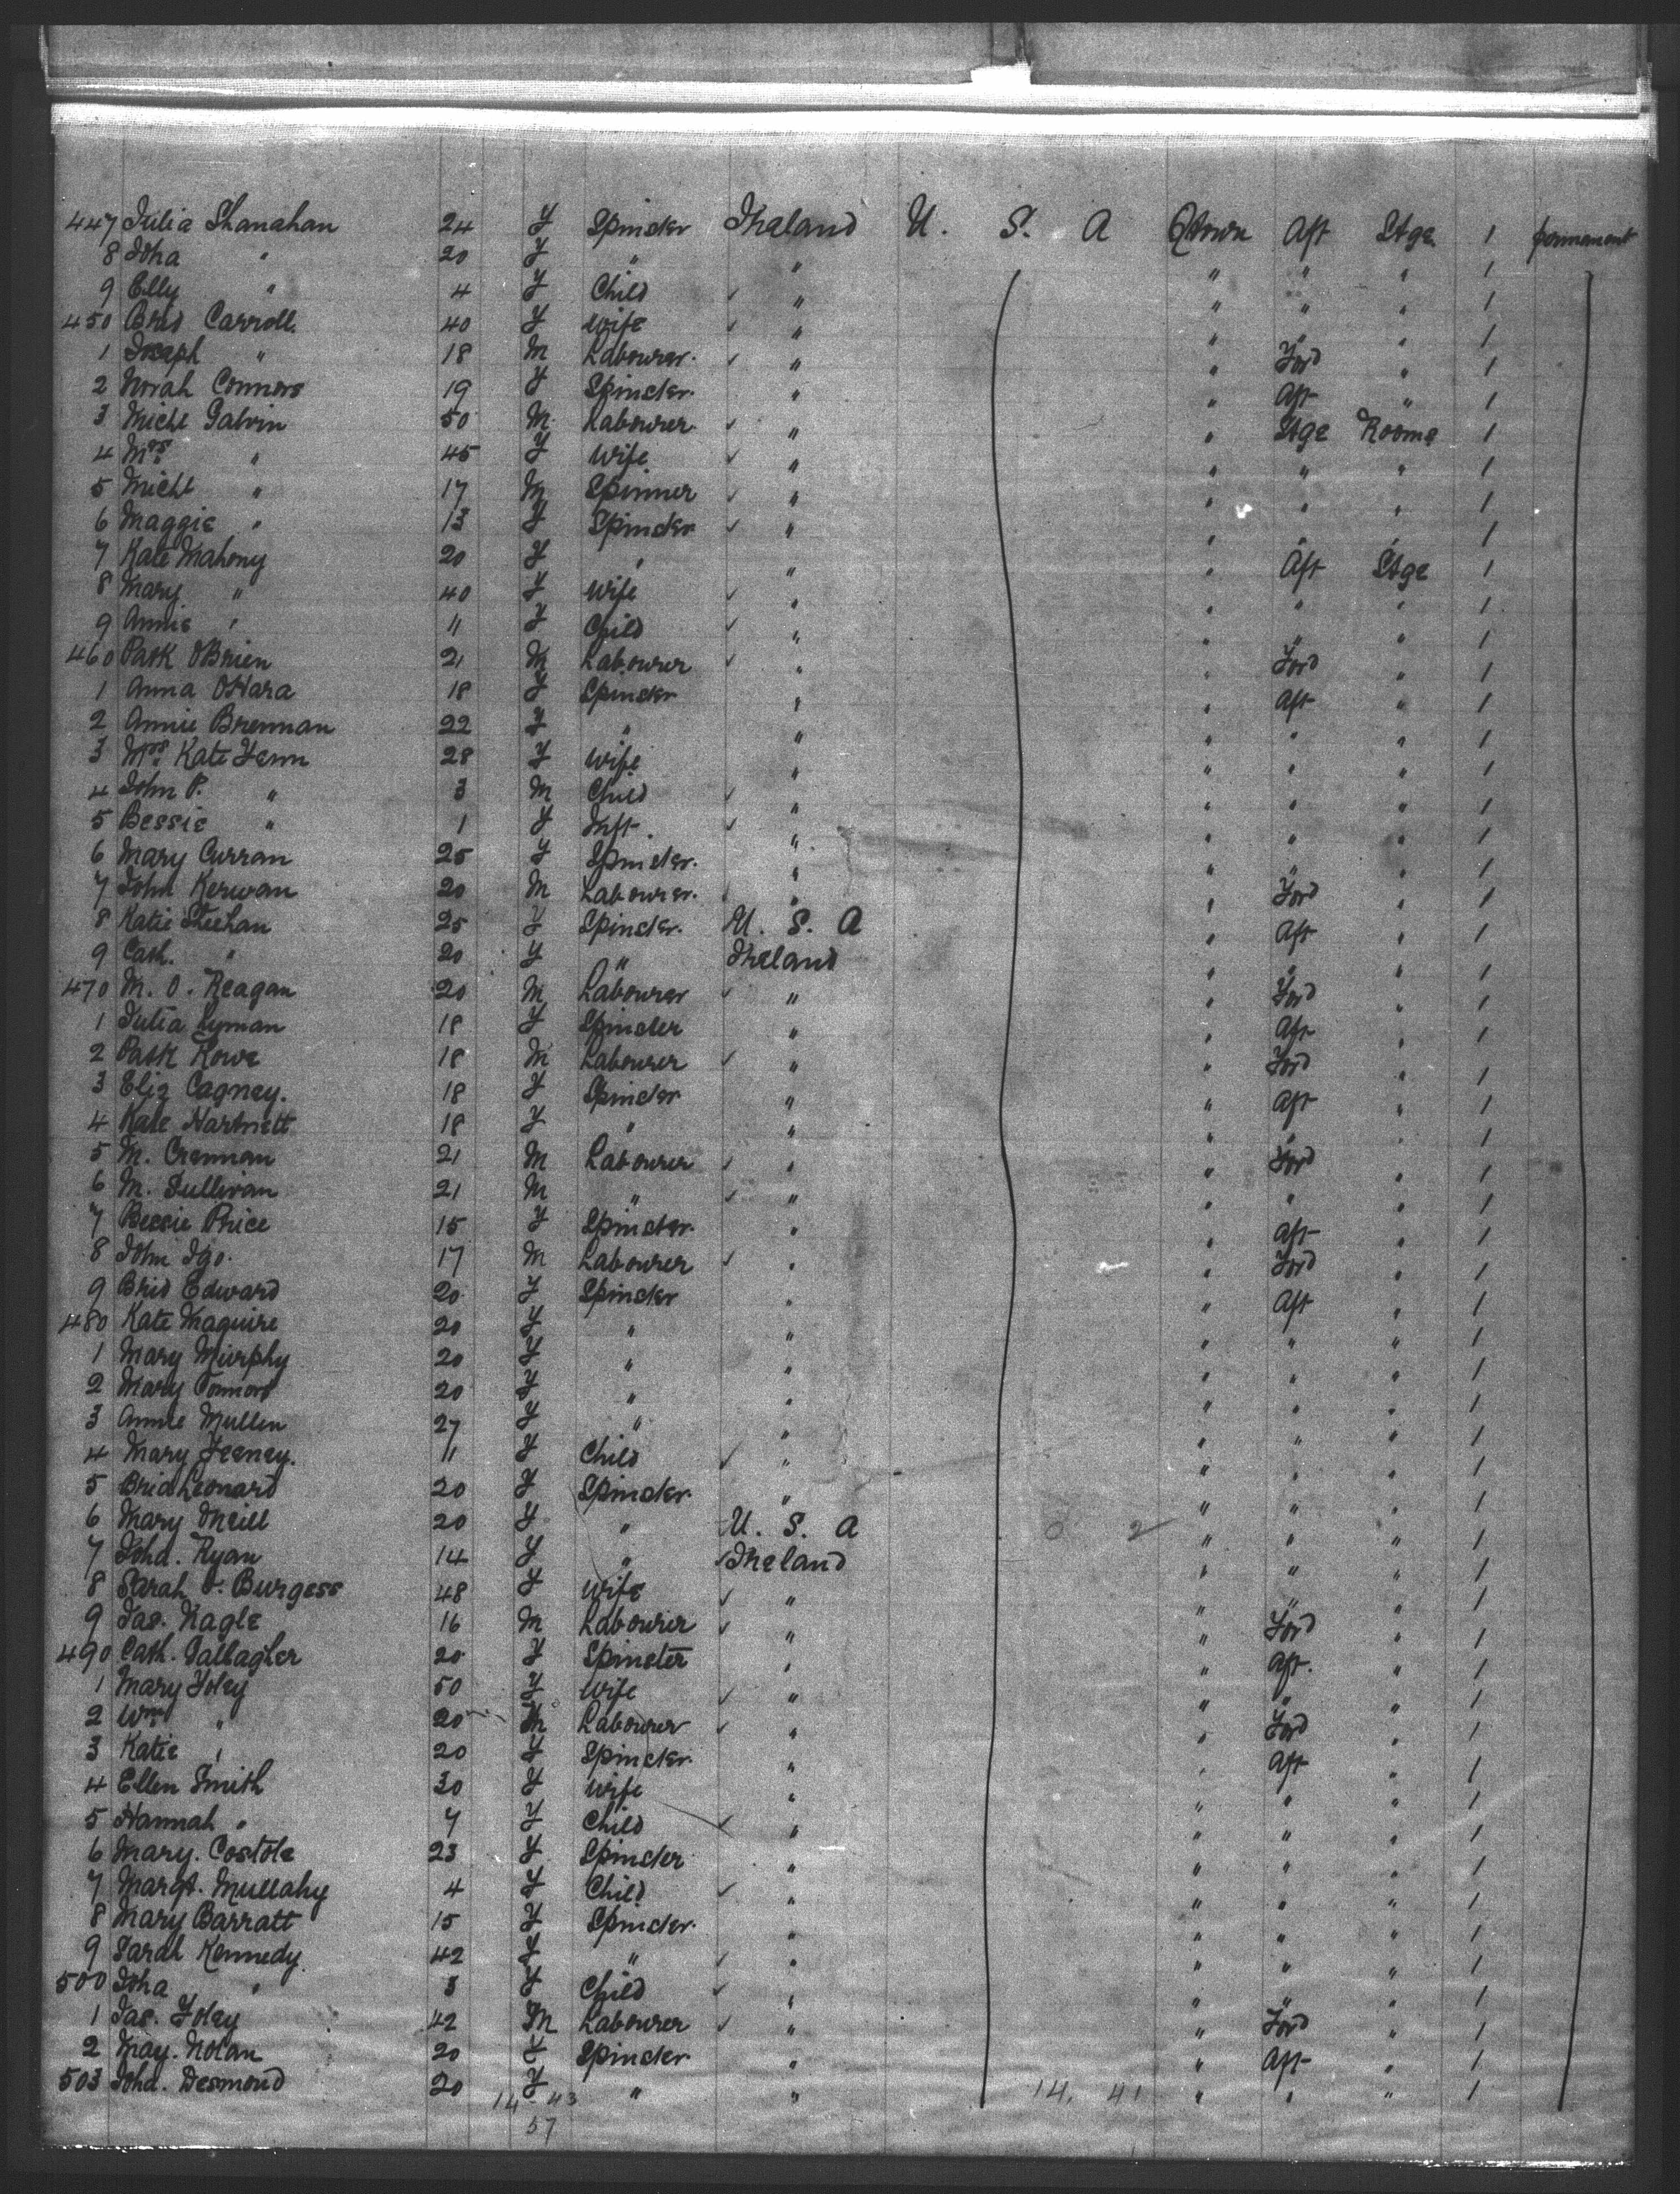 447 Julia Shanahan 24 F Spinster Ireland U. S. A Qtown Aft Stge 1 permanent
8 Joha " 20 F " " " " " 1
9 Elly " 4 F Child ✓ " " " " 1
450 Brid Carroll 40 F Wife ✓ " " " " 1
1 Joseph " 18 M Labourer ✓ " " Ford " 1
2 Norah Connors 19 F Spinster " " Aft " 1
3 Michl Galvin 50 M Labourer ✓ " " Stge Rooms 1
4 Mrs " 45 F Wife ✓ " " " " 1
5 Michl " 17 M Spinner ✓ " " " " 1
6 Maggie " 13 F Spinster ✓ " " " " 1
7 Kate Mahony 20 F " " " Aft Stge 1
8 Mary " 40 F Wife ✓ " " " " 1
9 Annie " 11 F Child ✓ " " " " 1
460 Patk OBrien 21 M Labourer ✓ " " Ford " 1
1 Anna OHara 18 F Spinster " " Aft " 1
2 Annie Brennan 22 F " " " " " 1
3 Mrs Kate Fenn 28 F Wife " " " " 1
4 John P. " 3 M Child ✓ " " " " 1
5 Bessie " 1 F Inft. ✓ " " " " 1
6 Mary Curran 25 F Spinster. " " " " 1
7 John Kerwan 20 M Labourer. " " Ford " 1
8 Katie Sheehan 25 F Spinster. U. S. A " Aft " 1
9 Cath. " 20 F " Ireland " " " 1
470 M. O. Reagan 20 M Labourer ✓ " " Ford " 1
1 Julia Lyman 18 F Spinster " " Aft " 1
2 Patk Rowe 18 M Labourer ✓ " " Ford " 1
3 Eliz Cagney. 18 F Spinster " " Aft " 1
4 Kate Hartnett 18 F " " " " " 1
5 M. Crennan 21 M Labourer ✓ " " Ford " 1
6 M. Sullivan 21 M " ✓ " " " " 1
7 Bessie Price 15 F Spinster. " " Aft " 1
8 John Igo. 17 M Labourer ✓ " " Ford " 1
9 Brid Edward 20 F Spinster " " Aft " 1
480 Kate Maguire 20 F " " " " " 1
1 Mary Murphy 20 F " " " " " 1
2 Mary Connors 20 F " " " " " 1
3 Annie Mullen 27 F " " " " " 1
4 Mary Feeney. 11 F Child ✓ " " " " 1
5 Brid Leonard 20 F Spinster. " " " " 1
6 Mary ONeill 20 F " U. S. A 2 " " " 1
7 Joha. Ryan 14 F " ✓ Ireland " " " 1
8 Sarah J. Burgess 48 F Wife ✓ " " " " 1
9 Jas. Nagle 16 M Labourer ✓ " " Ford " 1
490 Cath. Gallagher 20 F Spinster " " Aft. " 1
1 Mary Foley 50 F Wife ✓ " " " " 1
2 Wm " 20 M Labourer ✓ " " Ford " 1
3 Katie " 20 F Spinster. " " Aft " 1
4 Ellen Smith 30 F Wife " " " " 1
5 Hannah " 7 F Child ✓ " " " " 1
6 Mary. Costole 23 F Spinster " " " " 1
7 Margt. Mullahy 4 F Child ✓ " " " " 1
8 Mary Barratt 15 F Spinster. " " " " 1
9 Sarah Kennedy 42 F " ✓ " " " " 1
500 Joha " 3 F Child ✓ " " " " 1
1 Jas. Foley 42 M Labourer ✓ " " Ford " 1
2 May. Nolan 20 F Spinster. " " Aft " 1
503 Joha. Desmond 20 F " " 14. 41 " " " 1
14 43
57